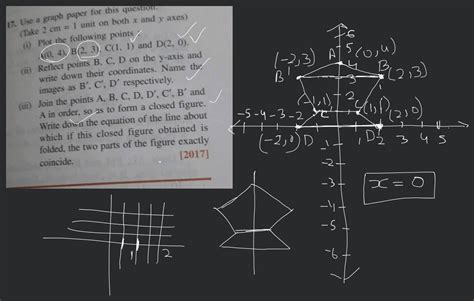 17. Use a graph paper for this question.
(Take 2 cm = 1 unit on both x and y axes)
(i) Plot the following points
A(0, 4), B(2, 3), C(1, 1) and D(2, 0).
(ii) Reflect points B, C, D on the y-axis and
write down their coordinates. Name the
images as B', C', D' respectively.
(iii) Join the points A, B, C, D, D', C', B' and
A in order, so as to form a closed figure.
Write down the equation of the line about
which if this closed figure obtained is
folded, the two parts of the figure exactly
coincide.
[2017]
6
5
A (0, 4)
4
(-2,3)
B'
3
B (2,3)
2
(-1,1)
C
(1,1)
(2,0)
-5 -4 -3 -2
1
D 2 3 4 5
(-2,0) D
-1
-2
-3
-4
-5
-6
x = 0
1
2